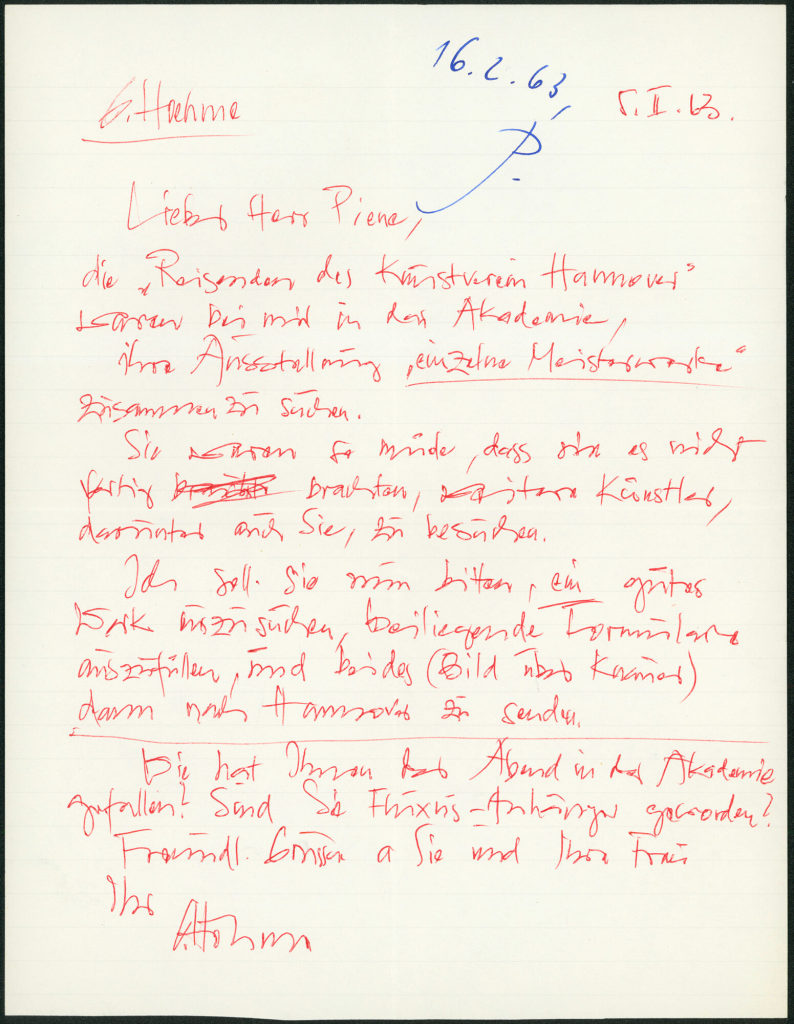 16.2.63,
G. Hoehme 5.II.63.
P.
Lieber Herr Piene,
die „Reisenden des Kunstverein Hannover“
waren bei mir in der Akademie,
ihre Ausstellung „einzelne Meisterwerke“
zusammen zu suchen.
Sie waren so müde, dass sie es nicht
fertig brachten, weitere Künstler,
darunter auch Sie, zu besuchen.
Ich soll Sie nun bitten, ein gutes
Werk auszusuchen, beiliegende Formulare
auszufüllen, und beides (Bild über Krämer)
dann nach Hannover zu senden.
Wie hat Ihnen der Abend in der Akademie
gefallen? Sind Sie Fluxus-Anhänger geworden?
Freundl. Grüsse a Sie und Ihre Frau
Ihr
G. Hoehme